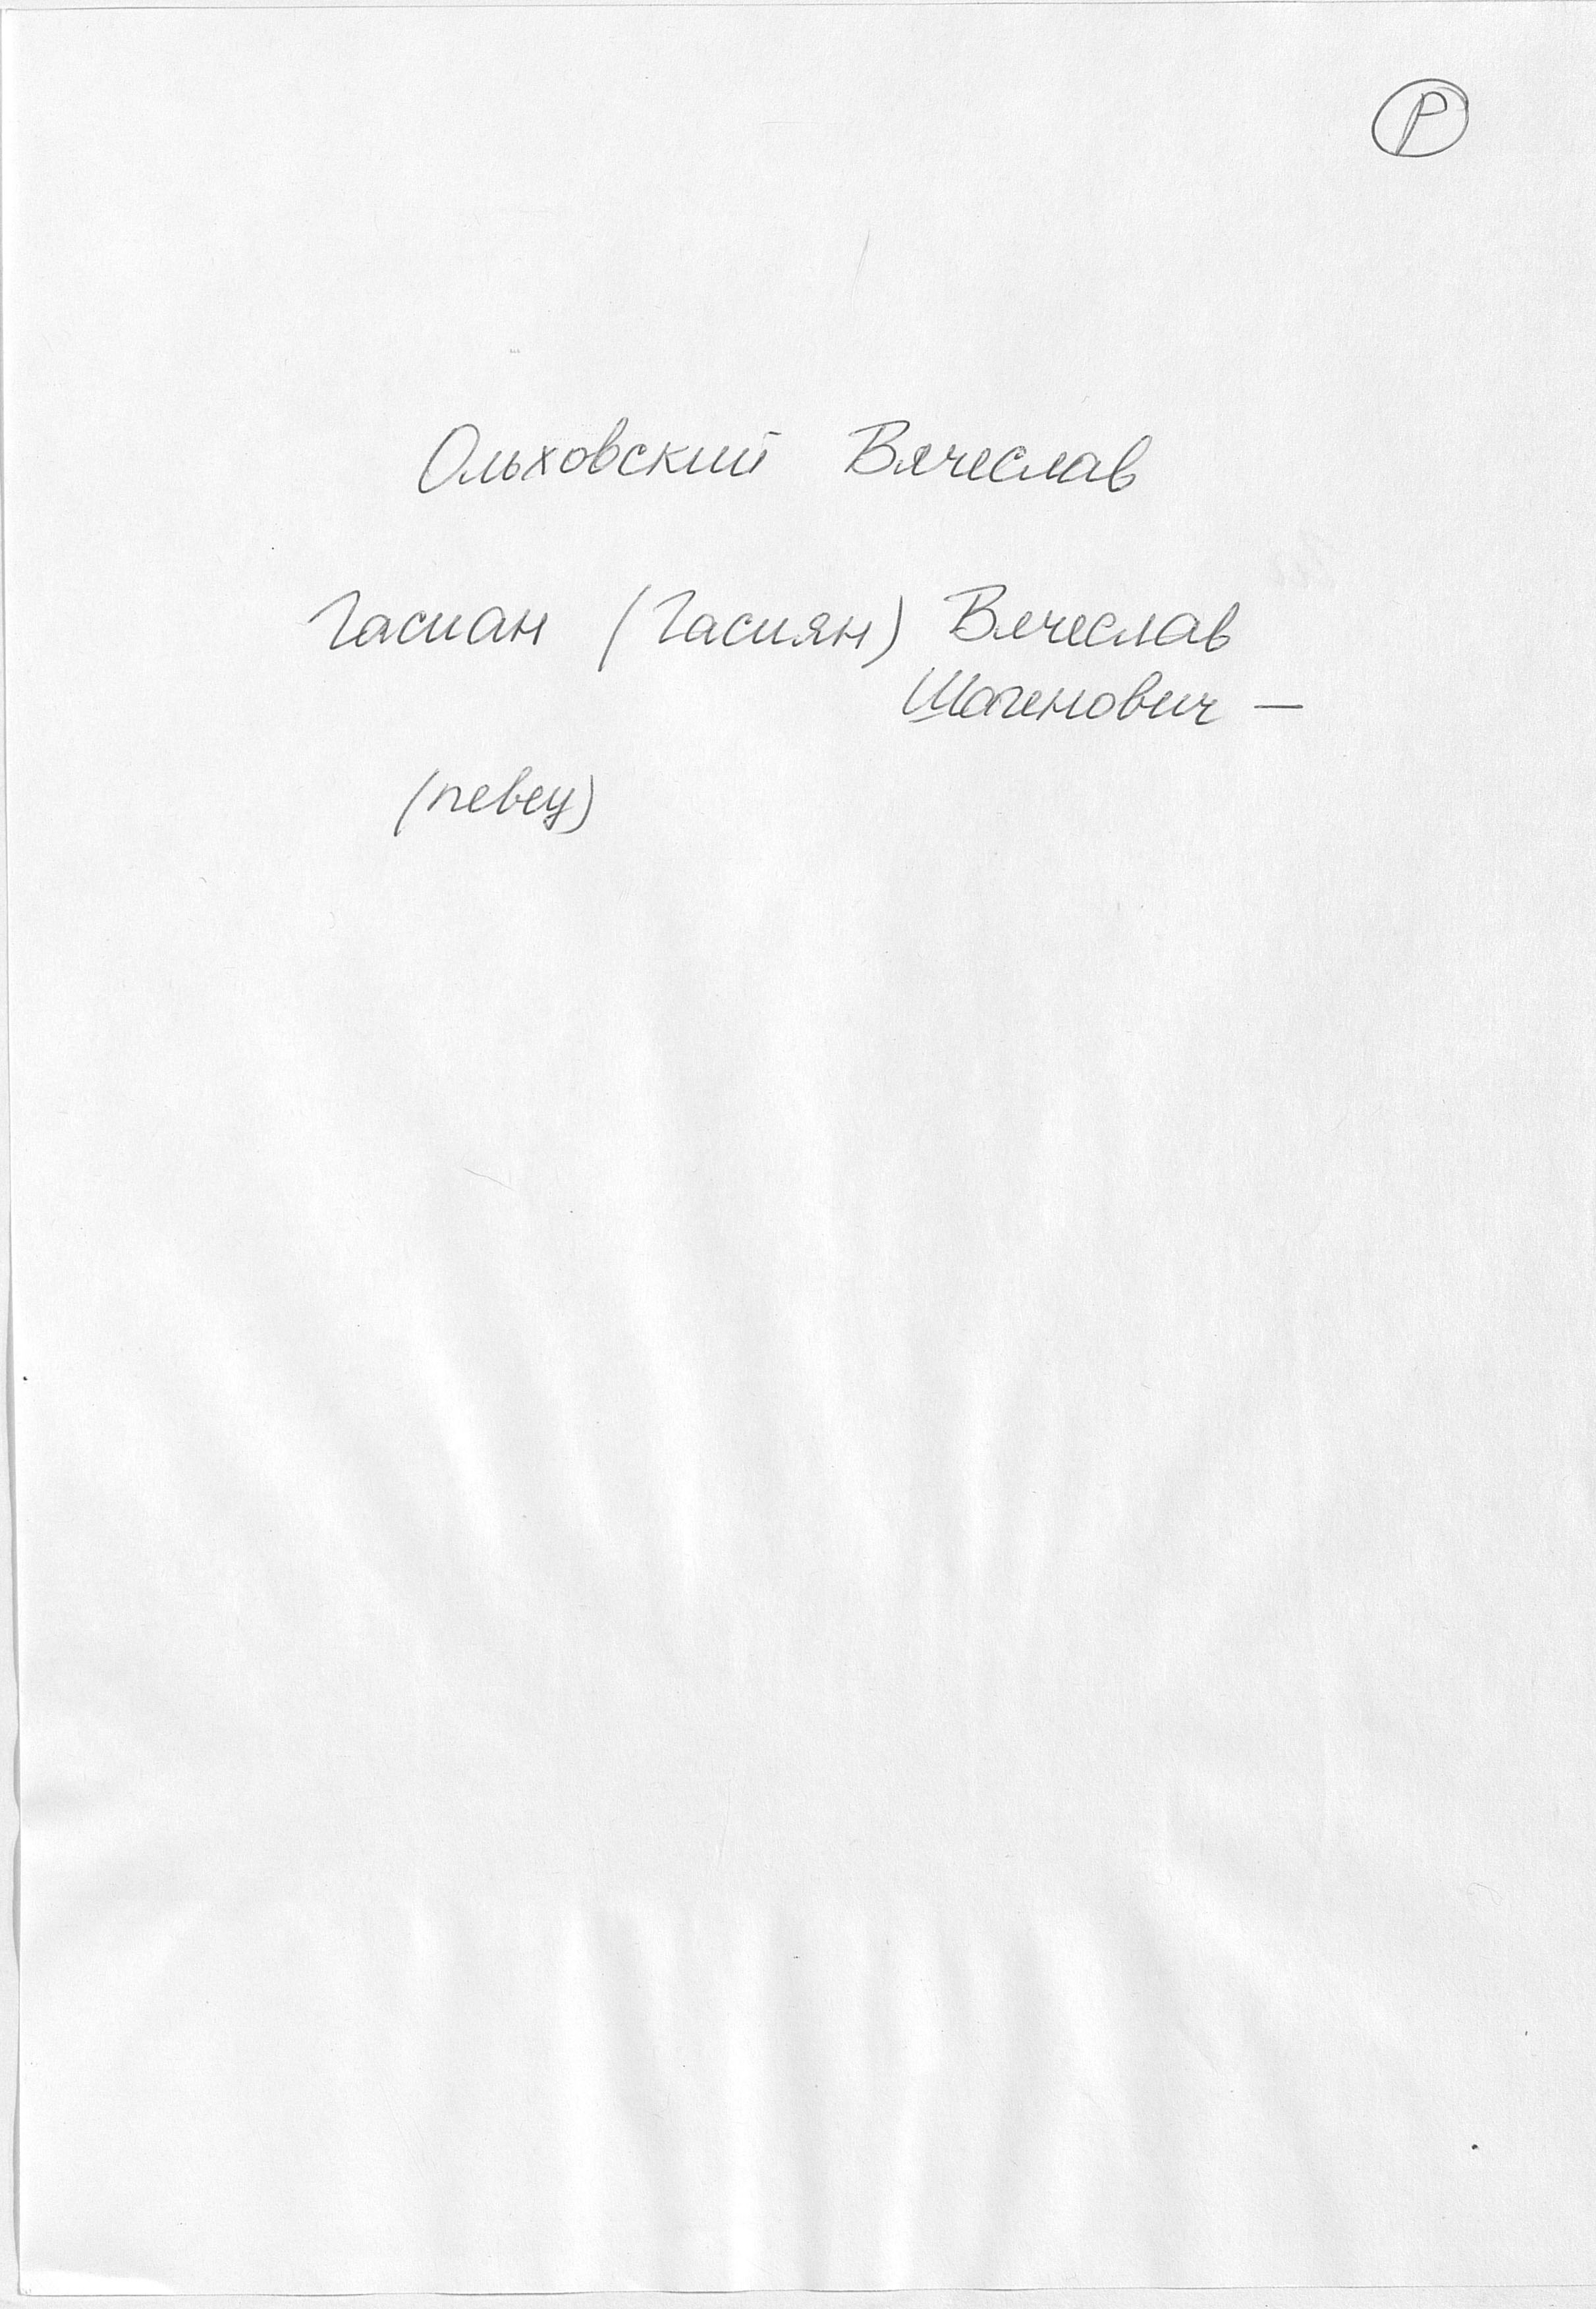 Р
Ольховский Вячеслав
Гасиан (Гасиян) Вячеслав
Шагенович —
(певец)